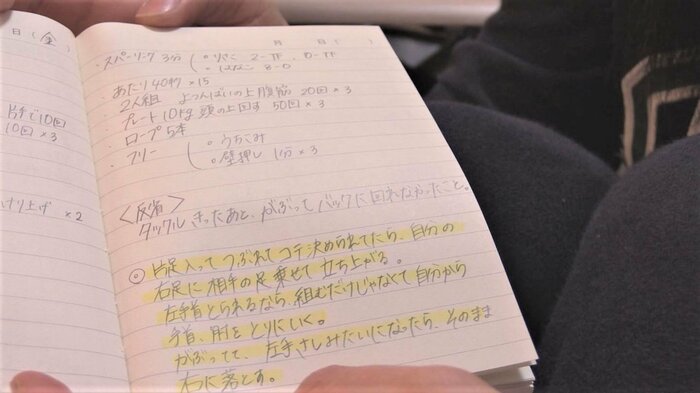 日(金)
片手で10回
10回×3
けり上げ ×2
月 日( )
・スパーリング 3分
2-TF
8-0
・あたり 40秒 ×15
・2人組 よつんばいの上腹筋 20回×3
・プレート10kg 頭の上回す 50回×3
・ロープ5本
・フリー
○うちこみ
○壁押し 1分×3
<反省>
タックルきったあと、がぶってバックに回れなかったこと。
◎片足入ってつぶれてコテ決められてたら、自分の
右足に相手の足乗せて立ち上がる。
左手首とられるなら、組むだけじゃなくて自分から
手首、肘をとりにいく。
がぶってて、左手さしみたいになったら、そのまま
右に落とす。